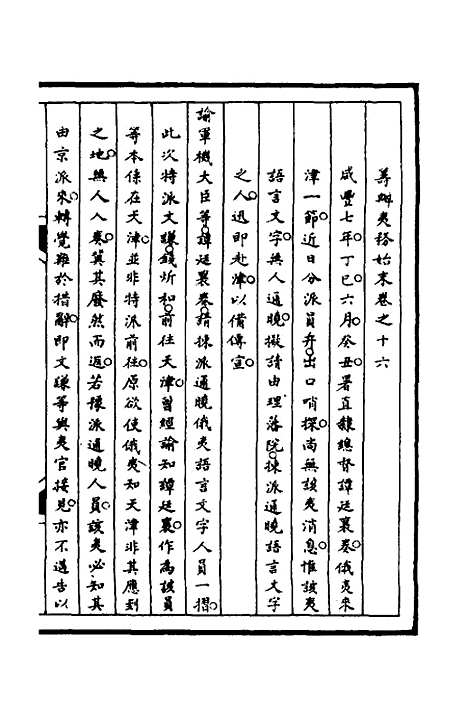 籌辦夷務始末卷之十六
咸豐七年丁巳六月癸丑署直隸總督譚廷襄奏俄夷來
津一節近日分派員弁出口哨探尚無該夷消息惟該夷
語言文字無人通曉擬請由理藩院揀派通曉語言文字
之人迅即赴津以備傳宣
諭軍機大臣等譚廷襄奏請揀派通曉俄夷語言文字人員一摺
此次特派文謙錢炘和前往天津曾經諭知譚廷襄作為該員
等本係在天津並非特派前往原欲使俄夷知天津非其應到
之地無人入奏冀其廢然而返若揀派通曉人員該夷必知其
由京派來轉覺難於措辭即文謙等與夷官接見亦不過告以